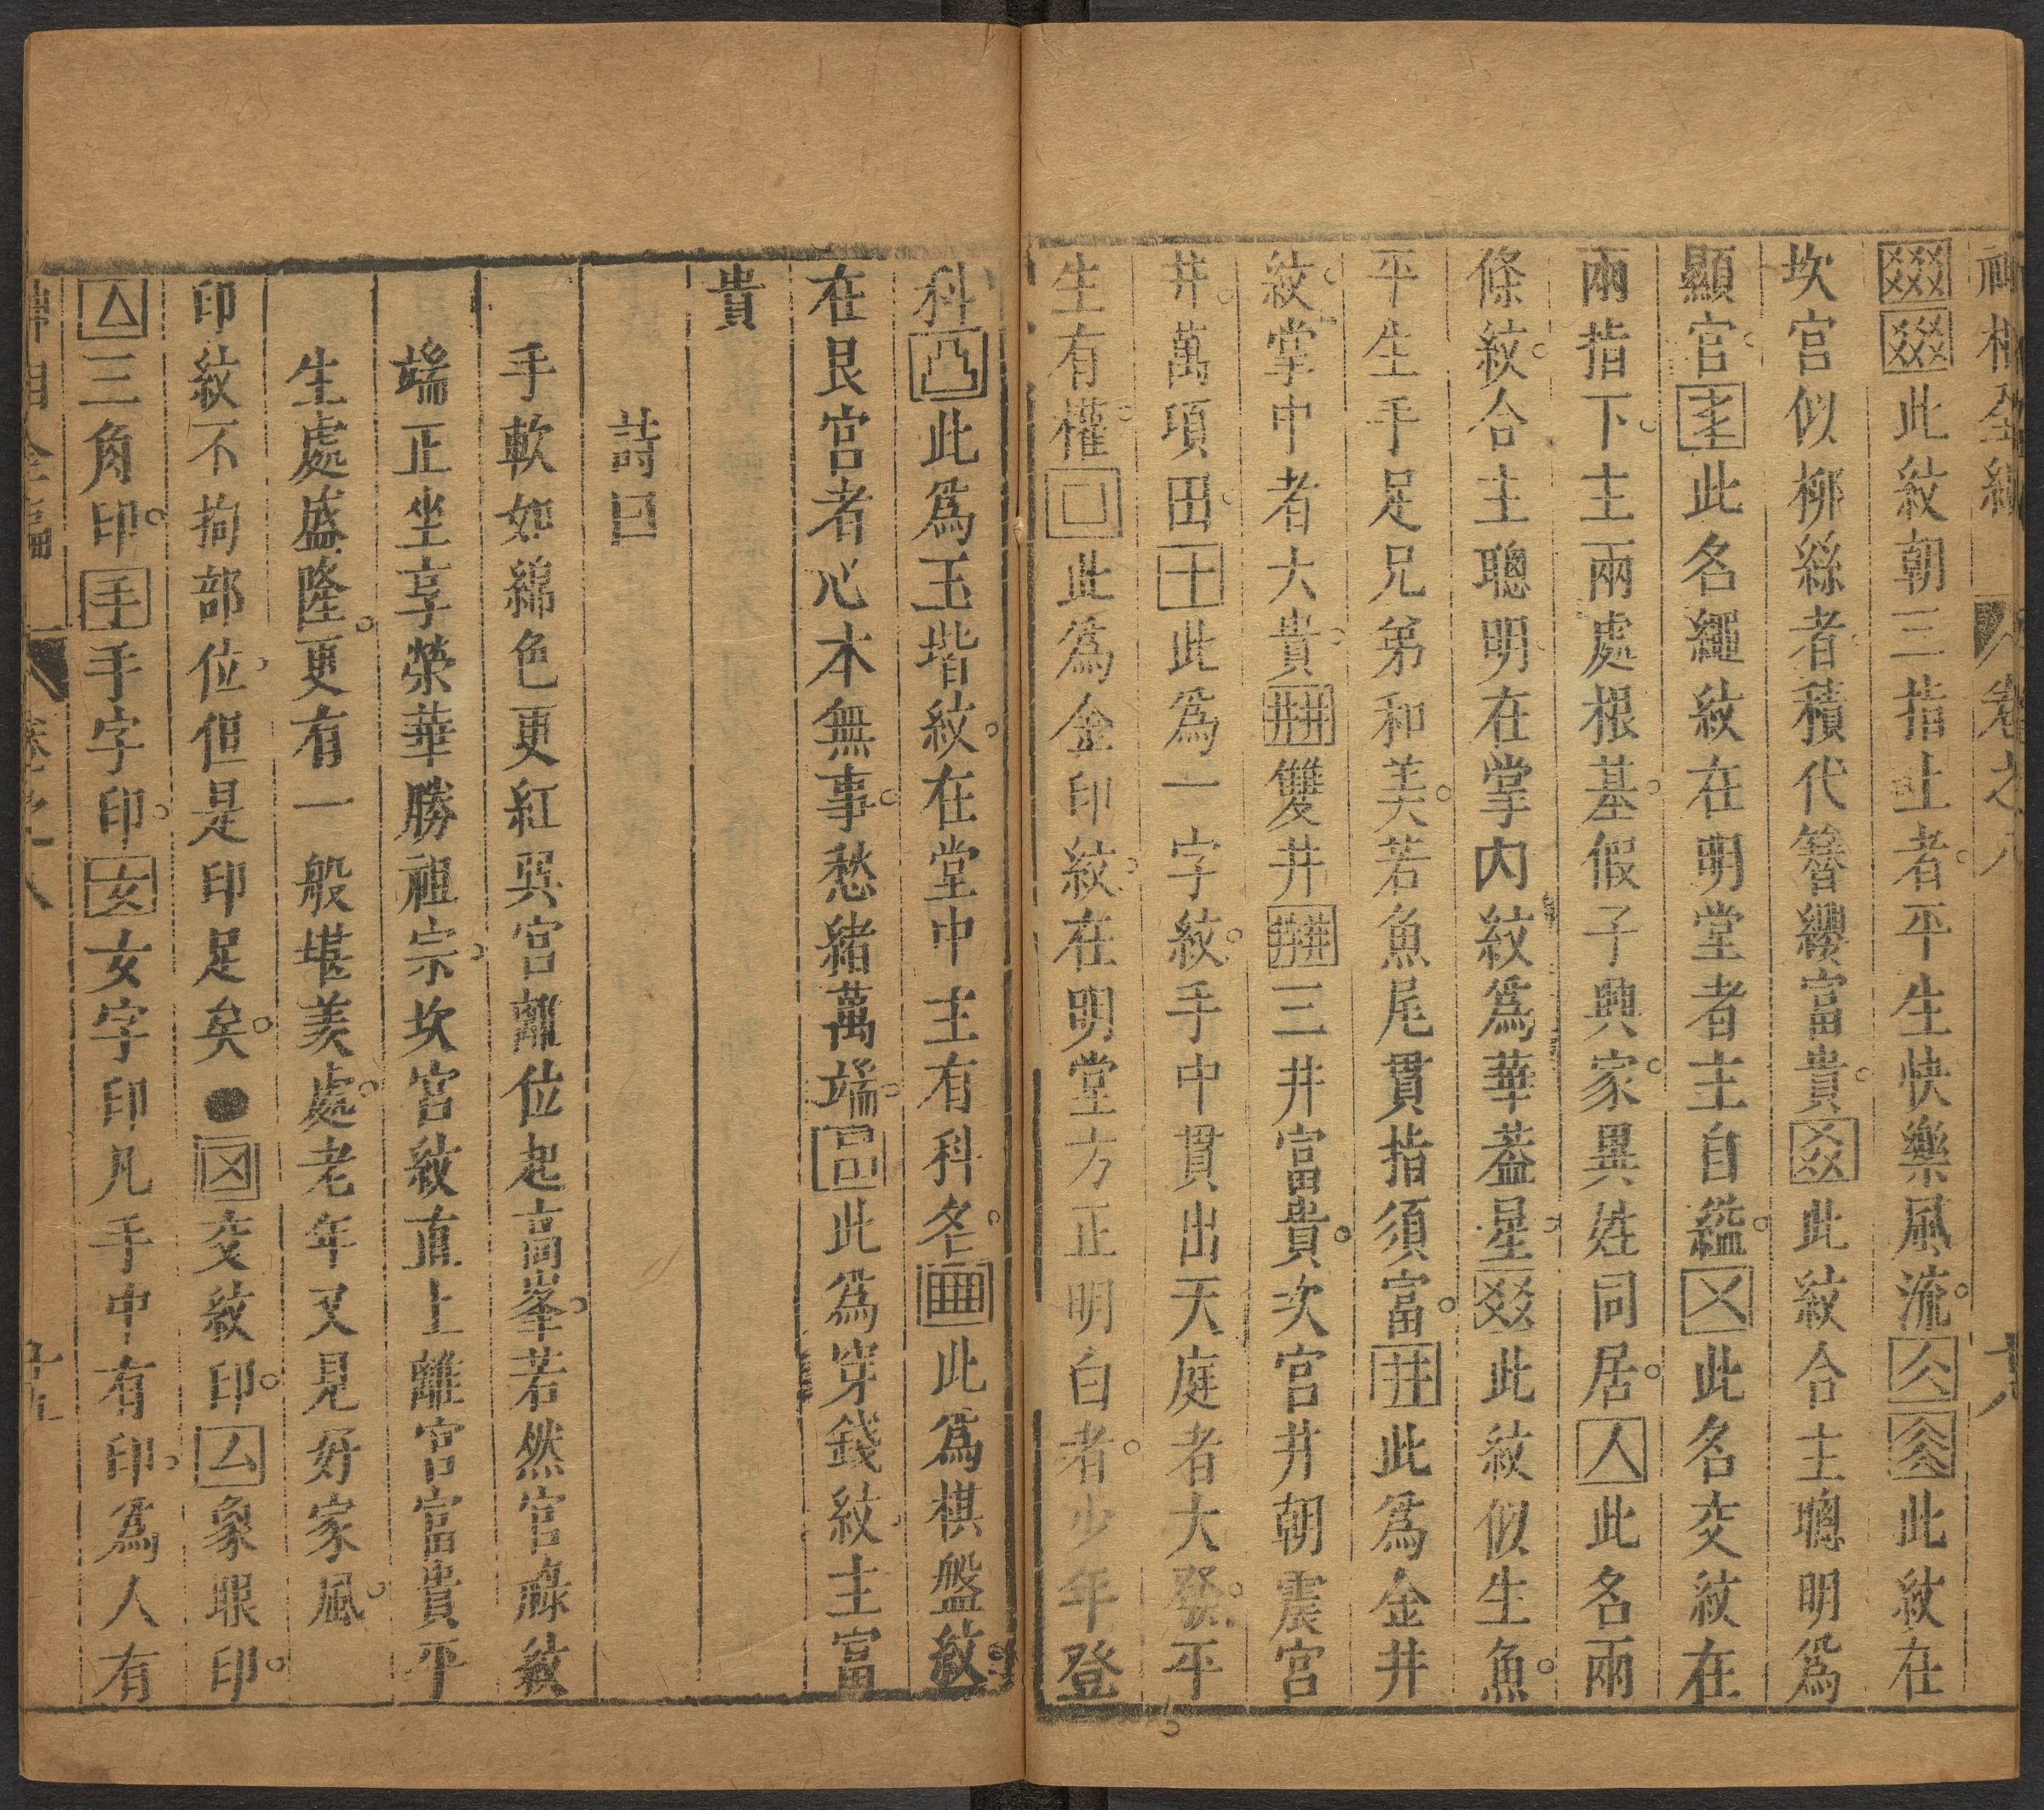 神相全編 卷之八 十八
此紋朝三指上者平生快樂風流此紋在
坎宮似柳絲者積代簪纓富貴此紋合主聰明爲
顯官此名繩紋在明堂者主自縊此名交紋在
兩指下主兩處根基假子興家異姓同居此名兩
條紋合主聰明在掌内紋爲華葢星此紋似生魚
平生手足兄弟和美若魚尾貫指須富井此爲金井
紋掌中者大貴雙井三井富貴次官井朝震宮
井萬項田十此爲一字紋手中貫出天庭者大發平
生有權口此爲金印紋在明堂方正明白者少年登
科凸此爲玉堦紋在堂中主有科名此爲棋盤紋
在艮宮者心本無事愁緒萬端此爲穿錢紋主富
貴
詩曰
手軟如綿色更紅巽宮離位起高峯若然官祿紋
端正坐享榮華勝祖宗坎宮紋直上離宮富貴平
生處盛隆更有一般堪羡處老年又見好家風
印紋不拘部位但是印足矣●交紋印象眼印
三角印手手字印女女字印凡手中有印爲人有
神相全編 卷之八